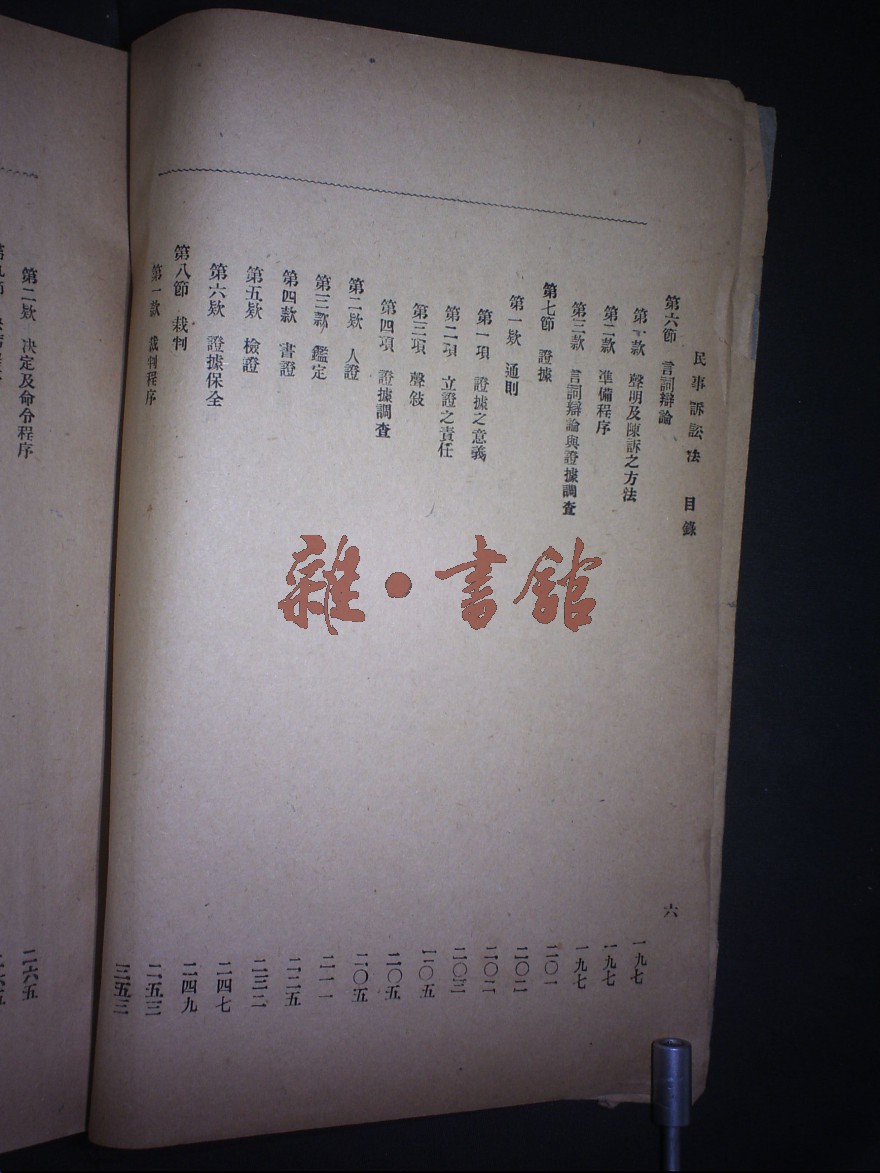 民事訴訟法 目錄 六
第六節 言詞辯論 一九七
第一款 聲明及陳訴之方法 一九七
第二款 準備程序 一九七
第三款 言詞辯論與證據調查 二〇一
第七節 證據 二〇二
第一欵 通則 二〇二
第一項 證據之意義 二〇三
第二項 立證之責任 二〇五
第三項 聲敍 二〇五
第四項 證據調查 二〇五
第二欵 人證 二一一
第三款 鑑定 二二五
第四款 書證 二三二
第五欵 檢證 二四七
第六欵 證據保全 二四九
第八節 裁判 二五三
第一款 裁判程序 三五三
第二欵 决定及命令程序 二六五
雜・書館